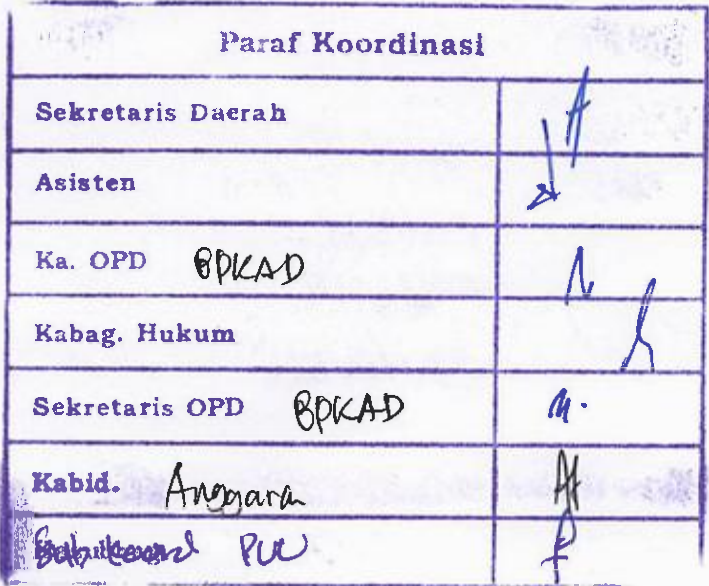 Paraf Koordinasi
Sekretaris Daerah
Asisten
Ka. OPD BPKAD
Kabag. Hukum
Sekretaris OPD BPKAD
Kabid. Anggaran
Sub koord